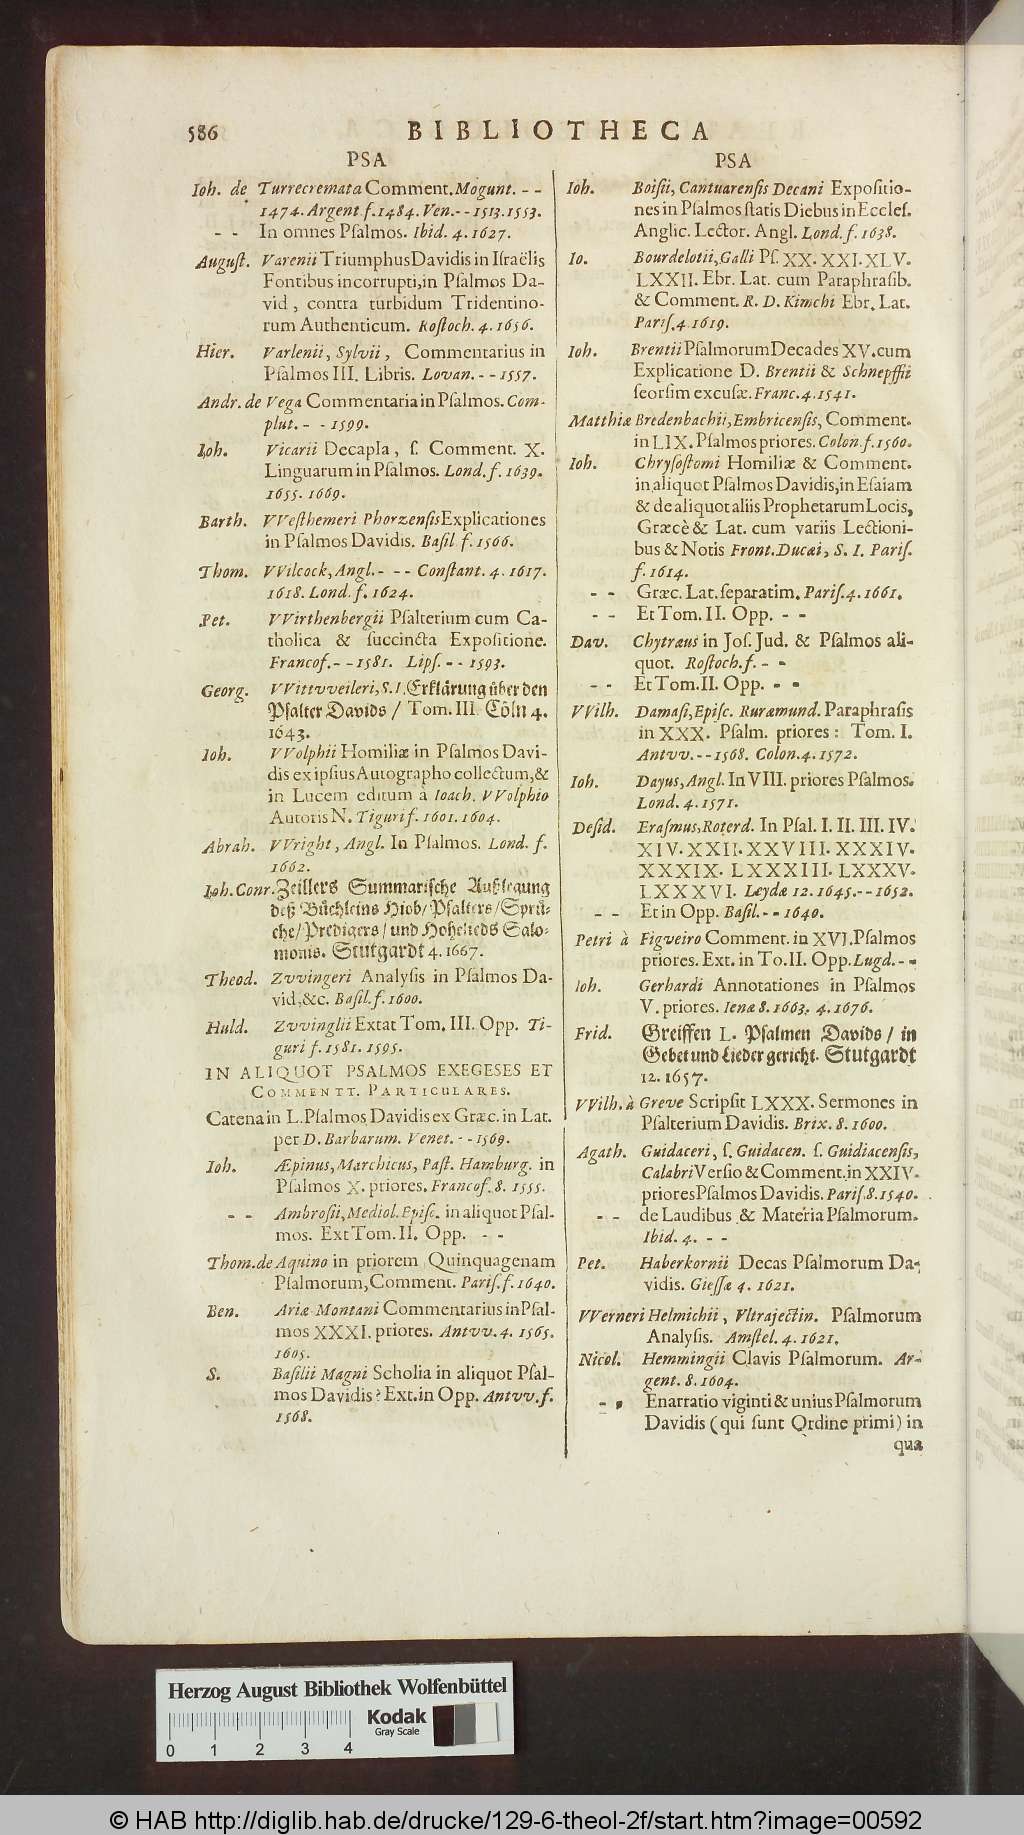 586
BIBLIOTHECA
PSA
Ioh. de Turrecremata Comment. Mogunt. - -
1474. Argent f. 1484. Ven. - - 1513. 1553.
- - In omnes Pſalmos. Ibid. 4. 1627.
Auguſt. Varenii Triumphus Davidis in Iſraëlis
Fontibus incorrupti, in Pſalmos Da-
vid, contra turbidum Tridentino-
rum Authenticum. Roſtoch. 4. 1656.
Hier. Varlenii, Sylvii, Commentarius in
Pſalmos III. Libris. Lovan. - - 1557.
Andr. de Vega Commentaria in Pſalmos. Com-
plut. - - 1599.
Ioh. Vicarii Decapla, ſ. Comment. X.
Linguarum in Pſalmos. Lond. f. 1639.
1655. 1669.
Barth. VVeſthemeri Phorzenſis Explicationes
in Pſalmos Davidis. Baſil f. 1566.
Thom. VVilcock, Angl. - - - Conſtant. 4. 1617.
1618. Lond. f. 1624.
Pet. VVirthenbergii Pſalterium cum Ca-
tholica & ſuccincta Expoſitione.
Francof. - - 1581. Lipſ. - - 1593.
Georg. VVittvveileri, S. I. Erklärung über den
Pſalter Davids / Tom. III. Cöln 4.
1643.
Ioh. VVolphii Homiliæ in Pſalmos Davi-
dis ex ipſius Autographo collectum, &
in Lucem editum à Ioach. VVolphio
Autoris N. Tiguri f. 1601. 1604.
Abrah. VVright, Angl. In Pſalmos. Lond. f.
1662.
Ioh. Conr. Zeillers Summariſche Außlegung
deß Büchleins Hiob / Pſalters / Sprü-
che / Predigers / und Hohelieds Salo-
monis. Stutgardt 4. 1667.
Theod. Zvvingeri Analyſis in Pſalmos Da-
vid, &c. Baſil. f. 1600.
Huld. Zvvinglii Extat Tom. III. Opp. Ti-
guri f. 1581. 1595.
IN ALIQUOT PSALMOS EXEGESES ET
COMMENTT. PARTICULARES.
Catena in L. Pſalmos Davidis ex Græc. in Lat.
per D. Barbarum. Venet. - - 1569.
Ioh. Æpinus, Marchicus, Paſt. Hamburg. in
Pſalmos X. priores. Francof. 8. 1555.
- - Ambroſii, Mediol. Epiſc. in aliquot Pſal-
mos. Ext Tom. II. Opp. - -
Thom. de Aquino in priorem Quinquagenam
Pſalmorum, Comment. Pariſ. f. 1640.
Ben. Ariæ Montani Commentarius in Pſal-
mos XXXI. priores. Antvv. 4. 1565.
1605.
S. Baſilii Magni Scholia in aliquot Pſal-
mos Davidis? Ext. in Opp. Antvv. f.
1568.
PSA
Ioh. Boiſii, Cantuarenſis Decani Expoſitio-
nes in Pſalmos ſtatis Diebus in Eccleſ.
Anglic. Lector. Angl. Lond. f. 1638.
Io. Bourdelotii, Galli Pſ. XX. XXI. XLV.
LXXII. Ebr. Lat. cum Paraphraſib.
& Comment. R. D. Kimchi Ebr. Lat.
Pariſ. 4. 1619.
Ioh. Brentii Pſalmorum Decades XV. cum
Explicatione D. Brentii & Schnepffii
ſeorſim excuſæ. Franc. 4. 1541.
Matthiæ Bredenbachii, Embricenſis, Comment.
in LIX. Pſalmos priores. Colon. f. 1560.
Ioh. Chryſoſtomi Homiliæ & Comment.
in aliquot Pſalmos Davidis, in Eſaiam
& de aliquot aliis Prophetarum Locis,
Græcè & Lat. cum variis Lectioni-
bus & Notis Front. Ducæi, S. I. Pariſ.
f. 1614.
- - Græc. Lat. ſeparatim. Pariſ. 4. 1661.
- - Et Tom. II. Opp. - -
Dav. Chytræus in Joſ. Jud. & Pſalmos ali-
quot. Roſtoch. f. - -
- - Et Tom. II. Opp. - -
VVilh. Damaſi, Epiſc. Ruræmund. Paraphraſis
in XXX. Pſalm. priores: Tom. I.
Antvv. - - 1568. Colon. 4. 1572.
Ioh. Dayus, Angl. In VIII. priores Pſalmos.
Lond. 4. 1571.
Deſid. Eraſmus, Roterd. In Pſal. I. II. III. IV.
XIV. XXII. XXVIII. XXXIV.
XXXIX. LXXXIII. LXXXV.
LXXXVI. Leydæ 12. 1645. - - 1652.
- - Et in Opp. Baſil. - - 1640.
Petri à Figveiro Comment. in XVI. Pſalmos
priores. Ext. in To. II. Opp. Lugd. - -
Ioh. Gerhardi Annotationes in Pſalmos
V. priores. Ienæ 8. 1663. 4. 1676.
Frid. Greiffen L. Pſalmen Davids / in
Gebet und Lieder gericht. Stutgardt
12. 1657.
VVilh. à Greve Scripſit LXXX. Sermones in
Pſalterium Davidis. Brix. 8. 1600.
Agath. Guidaceri, ſ. Guidacen. ſ. Guidiacenſis,
Calabri Verſio & Comment. in XXIV.
priores Pſalmos Davidis. Pariſ. 8. 1540.
- - de Laudibus & Materia Pſalmorum.
Ibid. 4. - -
Pet. Haberkornii Decas Pſalmorum Da-
vidis. Gieſſæ 4. 1621.
VVerneri Helmichii, Vltrajectin. Pſalmorum
Analyſis. Amſtel. 4. 1621.
Nicol. Hemmingii Clavis Pſalmorum. Ar-
gent. 8. 1604.
- - Enarratio viginti & unius Pſalmorum
Davidis (qui ſunt Ordine primi) in
qua
Herzog August Bibliothek Wolfenbüttel
Kodak
Gray Scale
0 1 2 3 4
© HAB http://diglib.hab.de/drucke/129-6-theol-2f/start.htm?image=00592